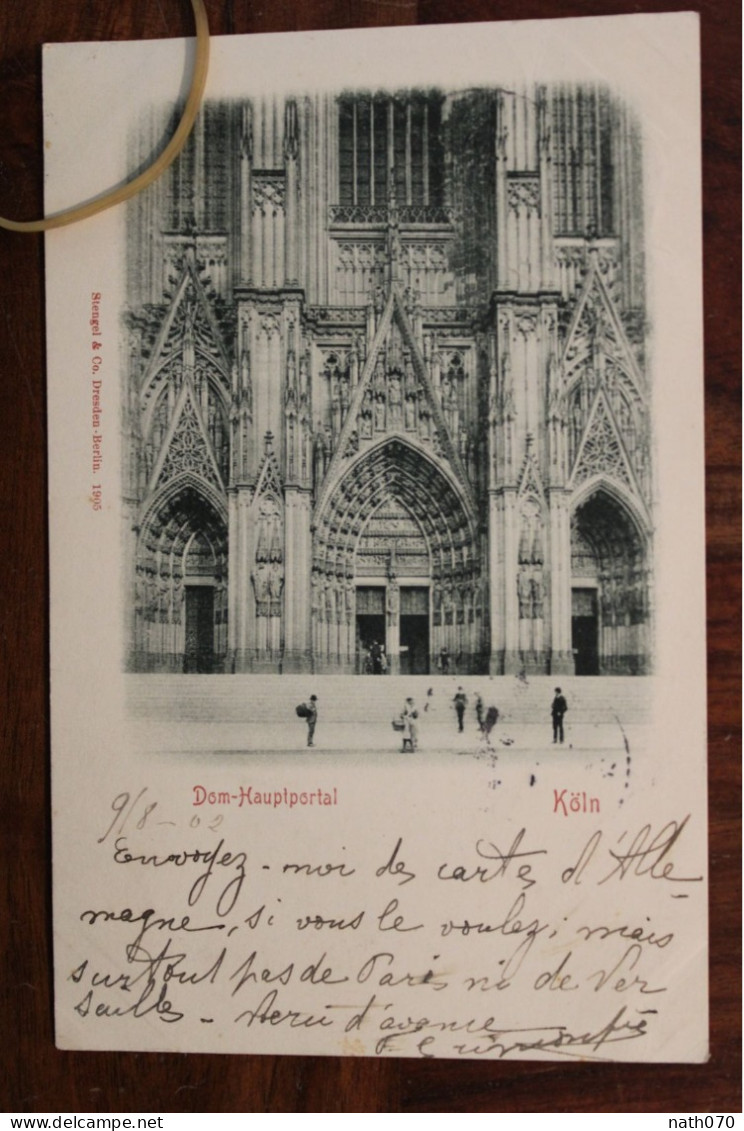 Stengel & Co. Dresden-Berlin. 1905
Dom-Hauptportal Köln
9/8-02
Envoyez-moi des cartes d'Alle
magne, si vous le voulez; mais
surtout pas de Paris ni de Ver
sailles - Merci d'avance
nath070